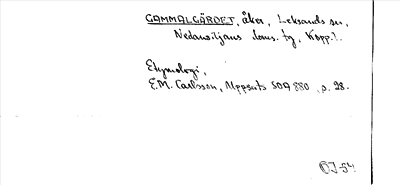 GAMMALGÄRDET, åker, Leksands sn,
Nedansiljans doms. tg, Kopp. l.
Etymologi,
E.M. Carlsson, Uppsats SOÄ 880, s. 28.
OJ-54